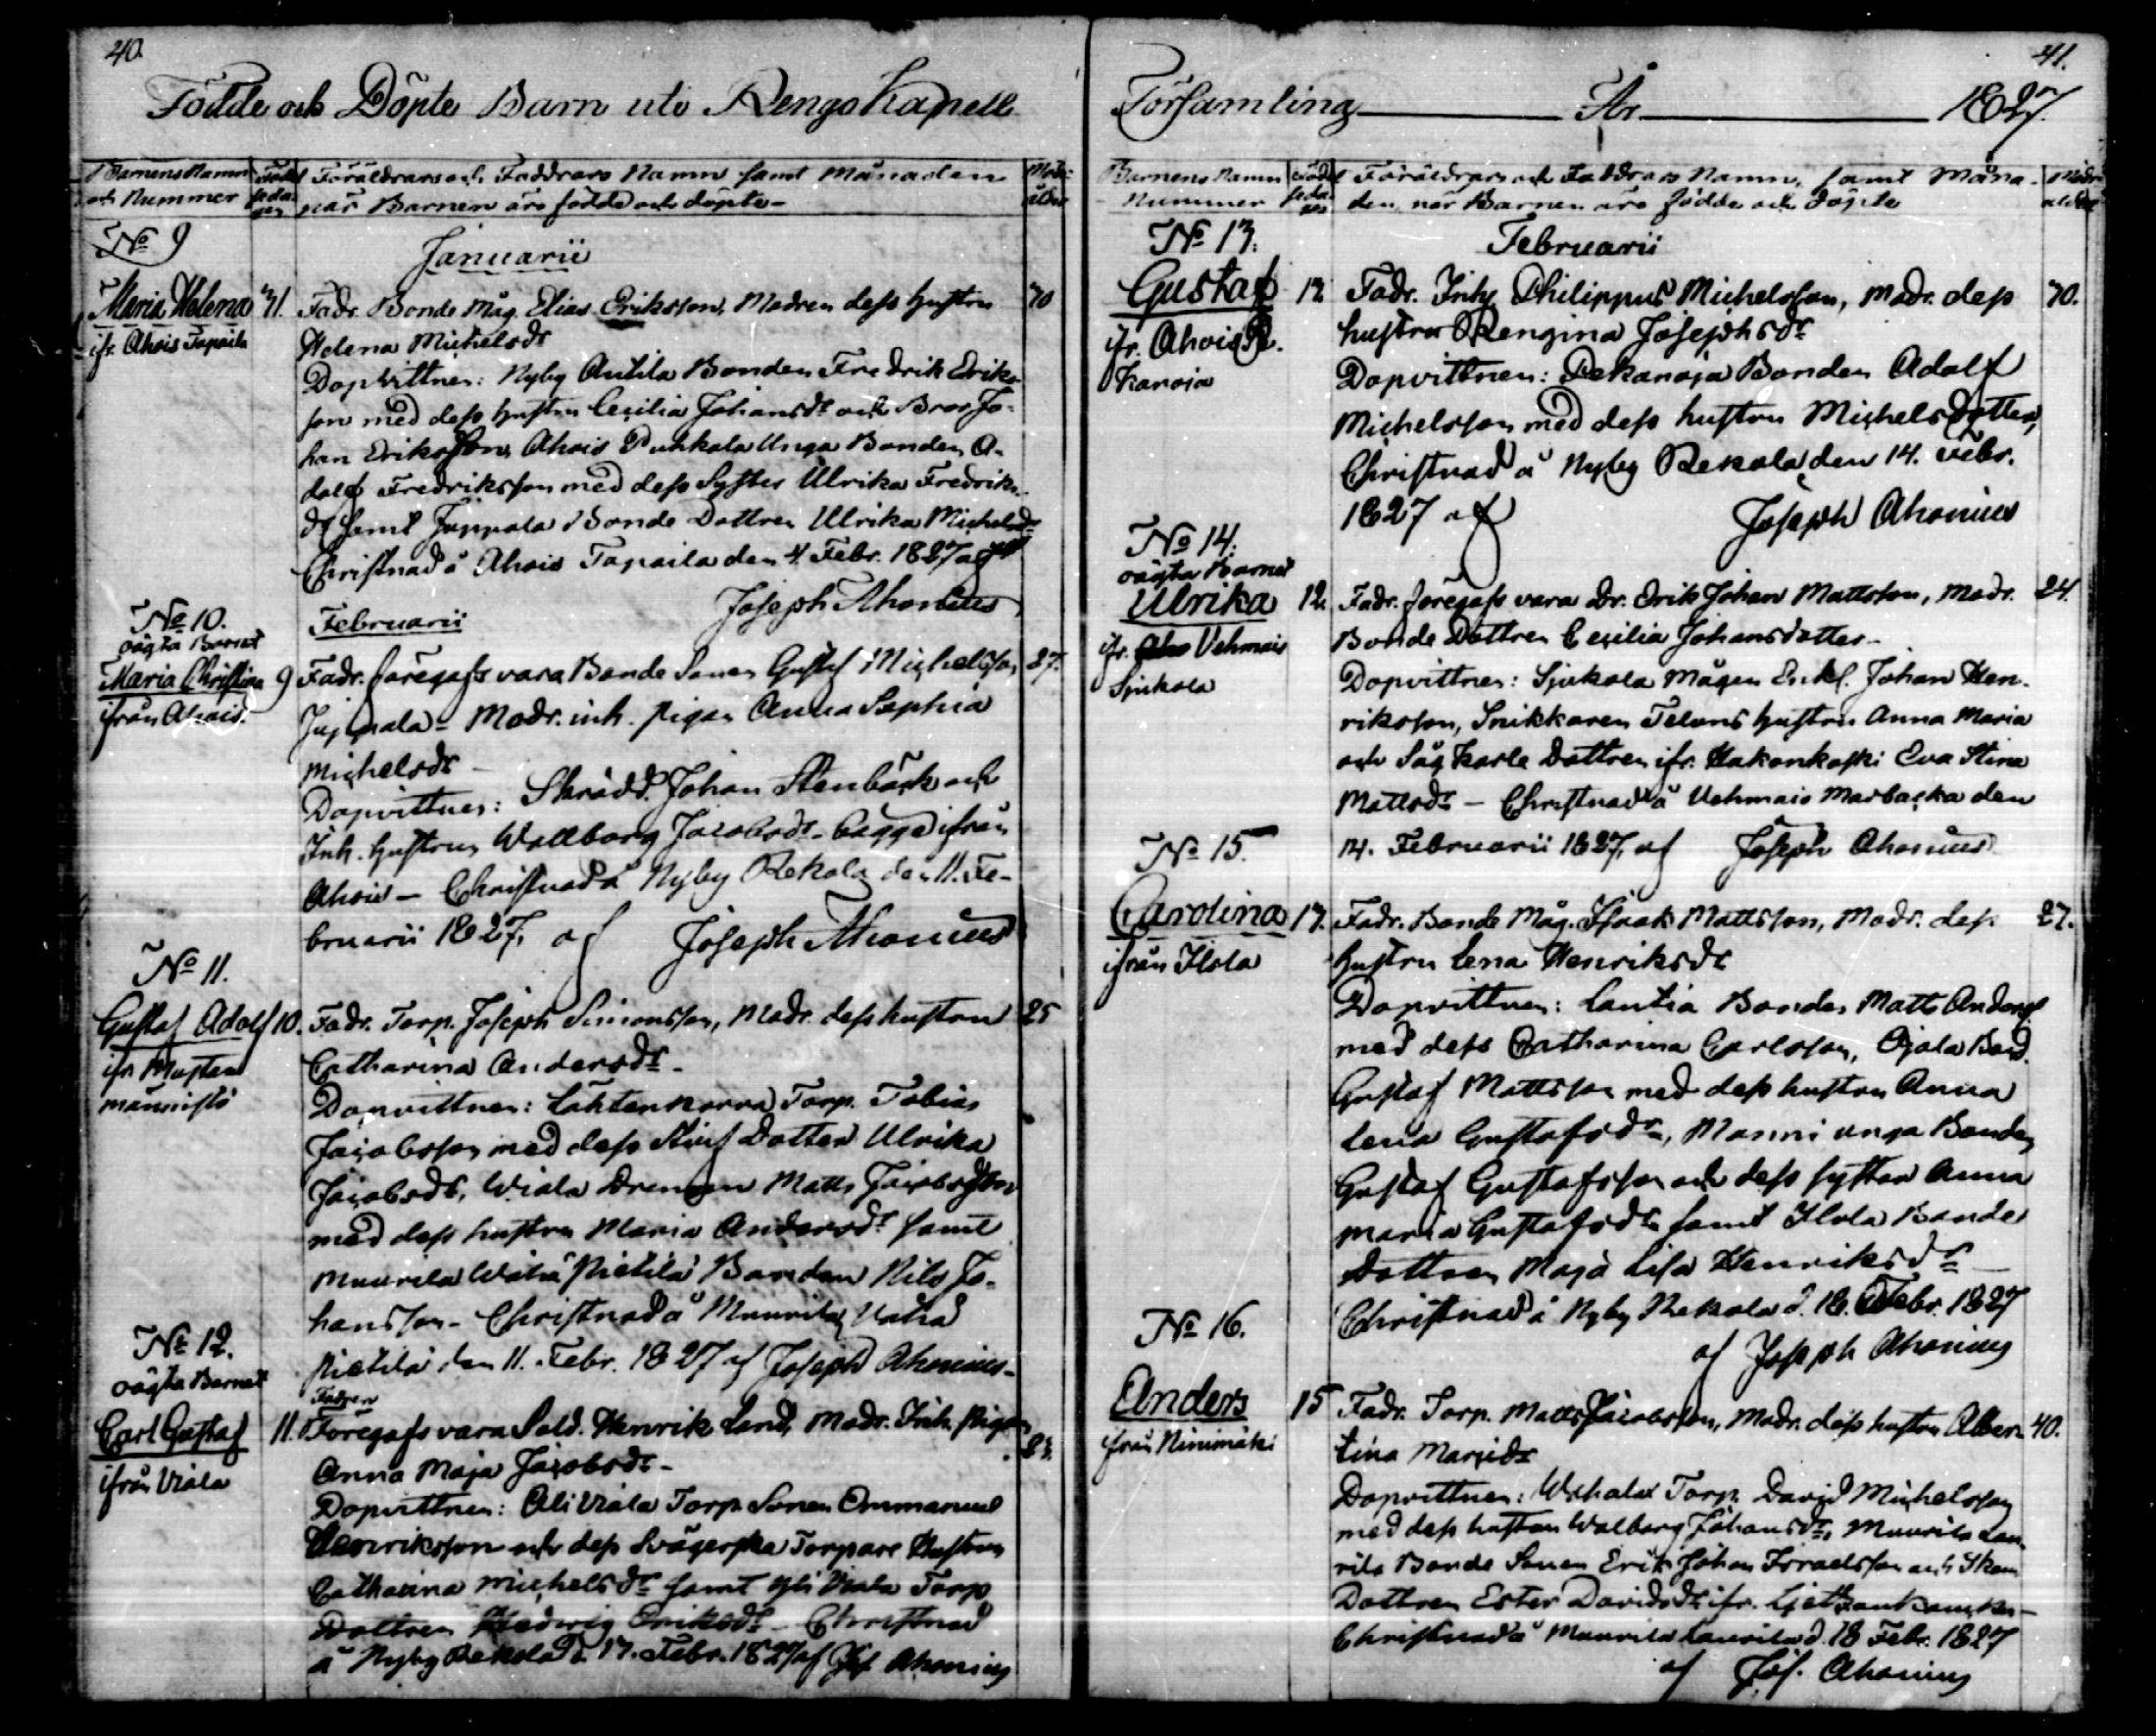 40.
Födde och Döpte Barn uti Rengo Kapell
Barnens Namn och Nummer
Födelsedagen
Föräldrars och Faddrars Namn samt Månaden
när Barnen äro födde och döpte
Modr: ålder
No 9
Januarii
Maria Helena
31.
Fadr. Bonde Måg. Elias Eriksson, Modren dess hustru
30
ifr. Ahois Tapaila
Helena Michelsdr
Dopvittnen: Nyby Antila Bonden Fredrik Eriks-
son med dess hustru Cecilia Johansdr och Bror Jo-
han Eriksson, Ahois Puhkala Unga Bonden A-
dolf Fredriksson med dess Syster Ulrika Fredriks-
dr samt Juppala Bonde Dottren Ulrika Michelsdr
Christnad å Ahois Tapaila den 4 Febr. 1827 af
Joseph Ahonius
No 10.
Februarii
oägta Barnet
Maria Christina
9
Fadr. föregafs vara Bonde Sonen Gustaf Michelsson
27.
ifrån Ahois.
Juppala - Modr. inh. pigan Anna Sophia
Michelsdr -
Dopvittnen: Skrädd. Johan Stenbäck och
Inh. hustrun Wallborg Jacobsdr - bägge ifrån
Ahois - Christnad å Nyby Rekola den 11. Fe-
bruarii 1827, af Joseph Ahonius
No 11.
Gustaf Adolf
10.
Fadr. Torp. Joseph Simonsson, Modr. dess hustru
25
ifr. Musten
männistö
Catharina Andersdr -
Dopvittnen: Lähtenkorva Torp. Tobias
Jacobsson med dess Stiuf Dotter Ulrika
Jacobsdr, Wiala Drengen Matts Jacobsson
med dess hustru Maria Andersdr samt
Muurila Wähä Pietilä Bonden Nils Jo-
hansson - Christnad å Muurila Vähä
Pietilä den 11. Febr. 1827 af Joseph Ahonius -
No 12.
oägta Barnet
Fadren
Carl Gustaf
11.
Föregafs vara Sold. Henrik Lend, Modr. Inh. Pigan
ifrån Viala
Anna Maja Jacobsdr -
Dopvittnen: Ali Viala Torp. Sonen Emmanuel
Henriksson och dess Svägerska Torpare Hustrun
Catharina Michelsdr samt Yli Viala Torp.
Dottren Hedwig Eriksdr - Christnad
å Nyby Rekola d. 17. Febr. 1827 af Jos. Ahonius
41.
Församling År 1827.
Barnens Namn Nummer
Födelsedagen
Föräldrars och Faddrars Namn, samt Måna-
den, när Barnen äro födde och döpte
Modrs ålder
No 13.
Februarii
Gustaf
12
Fadr. Inhy. Philippus Michelsson, Modr. dess
30.
ifr. Ahois Pe-
kanoja
hustru Regina Josephsdr
Dopvittnen: Pekanoja Bonden Adolf
Michelsson med dess hustru Michelsdotter,
Christnad å Nyby Rekola den 14. Febr.
1827 af Joseph Ahonius
No 14.
oägta Barnet
Ulrika
12.
Fadr. föregafs vara Dr. Erik Johan Mattsson, Modr.
24.
ifr. Vehmais
Sjukola
Bonde Dottren Cecilia Johansdotter -
Dopvittnen: Sjukola Mågen Enkl. Johan Hen-
riksson, Snikkaren Telens hustru Anna Maria
och Såg Karls Dottren ifr. Hakonkoski Eva Stina
Mattsdr - Christnad å Vehmais Marbacka den
14. Februarii 1827, af Joseph Ahonius
No 15.
Carolina
17.
Fadr. Bonde Måg. Isaak Mattsson, Modr. dess
27.
ifrån Ilola
hustru Lena Henriksdr
Dopvittnen: Lautia Bonden Matts Anderss.
med dess Catharina Carlsson, Ojala Bond.
Gustaf Mattsson med dess hustru Anna
Lena Gustafsdr, Manni unga Bonden
Gustaf Gustafsson och dess syster Anna
Maria Gustafsdr samt Ilola Bonde
Dottren Maja Lisa Henriksdr -
Christnad å Nyby Rekola d. 18. Febr. 1827
af Joseph Ahonius
No 16.
Anders
15
Fadr. Torp. Matts Jacobsson, Modr. dess hustru Alber-
40.
ifrån Ninimäki
tina Mariedr
Dopvittnen: Wehala Torp. David Michelsson
med dess hustru Walborg Johansdr, Muurila Lau-
rila Bonde Sonen Erik Johan Israelsson och
Dottren Ester Davidsdr ifr.
Christnad å Muurila Laurila d. 18 Febr. 1827
af Jos. Ahonius